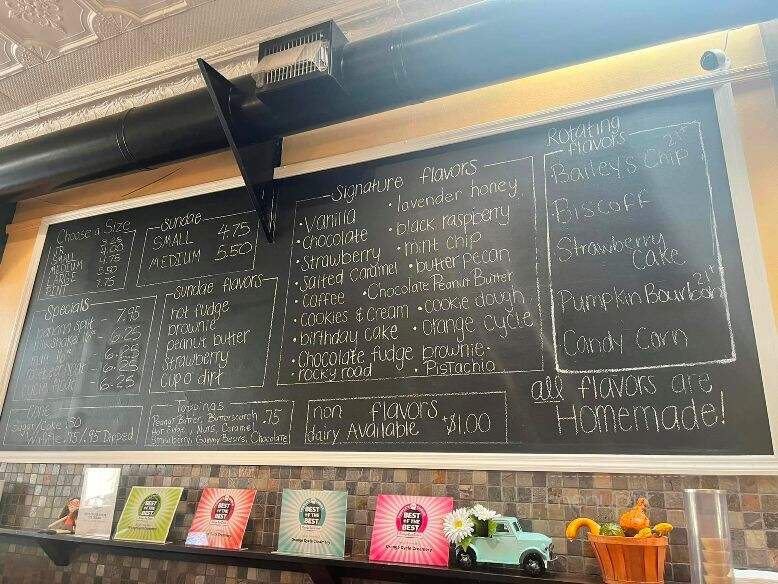 Choose a Size
JR
SMALL 4.00
MEDIUM 4.75
LARGE 5.50
PINT 9.75
Sundae
SMALL 4.75
MEDIUM 5.50
Specials
banana split - 7.95
milkshake - 6.25
- 6.25
- 6.25
- 6.25
Sundae flavors
hot fudge
brownie
peanut butter
Strawberry
cup o dirt
Cone
Sugar/Cake .50
Waffle .75/.95 Dipped
Toppings .75
Peanut Butter, Butterscotch
Hot Fudge, Nuts, Caramel
Strawberry, Gummy Bears, Chocolate
Signature flavors
• Vanilla
• Chocolate
• Strawberry
• Salted Caramel
• Coffee
• Cookies & Cream
• birthday cake
• Chocolate fudge brownie •
• rocky road
• lavender honey
• black raspberry
• mint chip
• butter pecan
• Chocolate Peanut Butter
• cookie dough
• Orange cycle
• Pistachio
non dairy flavors Available +$1.00
Rotating flavors
Bailey's Chip 21+
Biscoff
Strawberry Cake
Pumpkin Bourbon 21+
Candy Corn
all flavors are
Homemade!
BEST OF THE BEST
Orange Cycle Creamery
BEST OF THE BEST
Orange Cycle Creamery
BEST OF THE BEST
Orange Cycle Creamery
BEST OF THE BEST
Orange Cycle Creamery